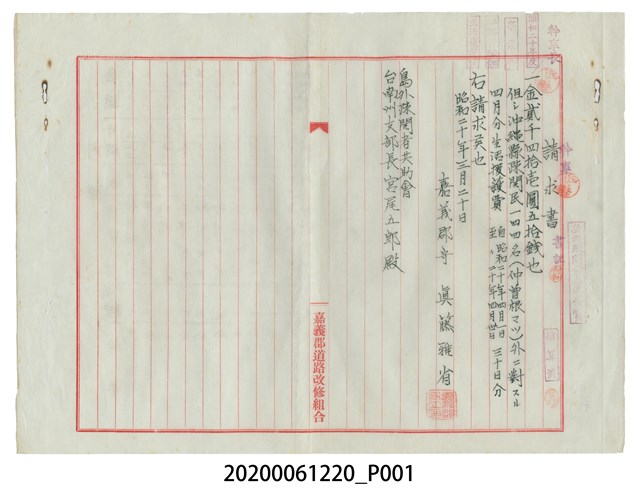 請求書
一金貳千四拾壱圓五拾銭也
但シ沖縄縣疎開民一四四名(仲曽根マツ)外ニ對スル
四月分生活援護費 自昭和二十年四月一日 至〃二十年四月卅日 三十日分
右請求候也
昭和二十年三月二十日
嘉義郡守 眞篠雅省
島外疎開者共助會
台南州支部長 宮尾五郎殿
嘉義郡道路改修組合
20200061220_P001